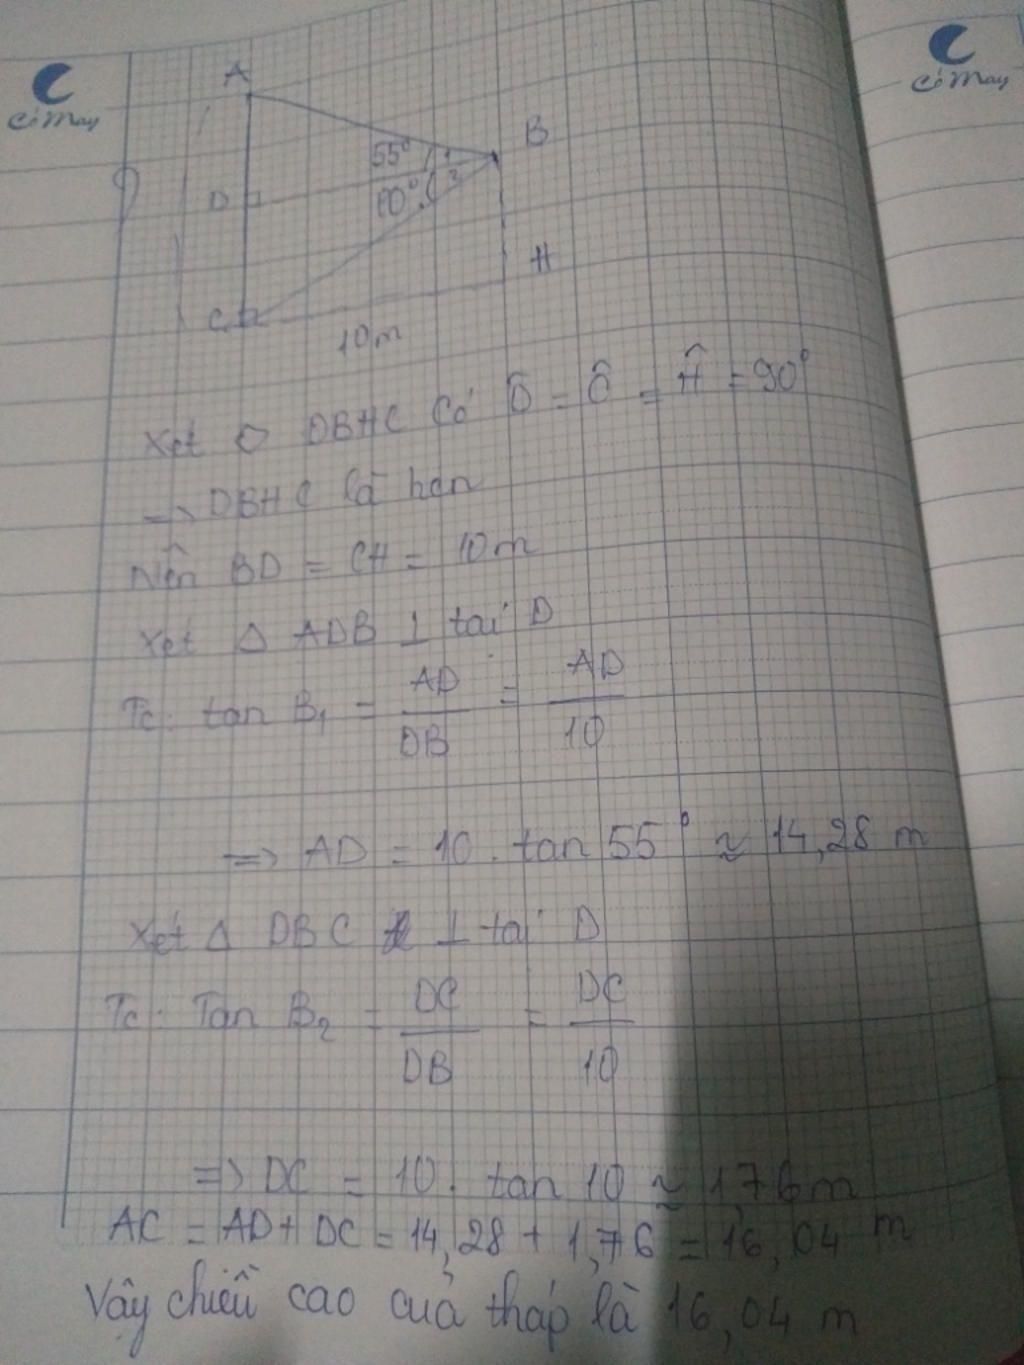 Cỏ May
Cỏ May
A
B
55° 1
D
10° 2
H
C
10m
Xét DBHC có D̂ = Ĉ = Ĥ = 90°
=> DBHC là hcn
Nên BD = CH = 10m
Xét Δ ADB ⊥ tại D
Tc: tan B₁ = AD/DB = AD/10
=> AD = 10 . tan 55° ≈ 14,28 m
Xét Δ DBC ⊥ tại D
Tc: Tan B₂ = DC/DB = DC/10
=> DC = 10 . tan 10 ≈ 1,76m
AC = AD + DC = 14,28 + 1,76 = 16,04 m
Vậy chiều cao của tháp là 16,04 m